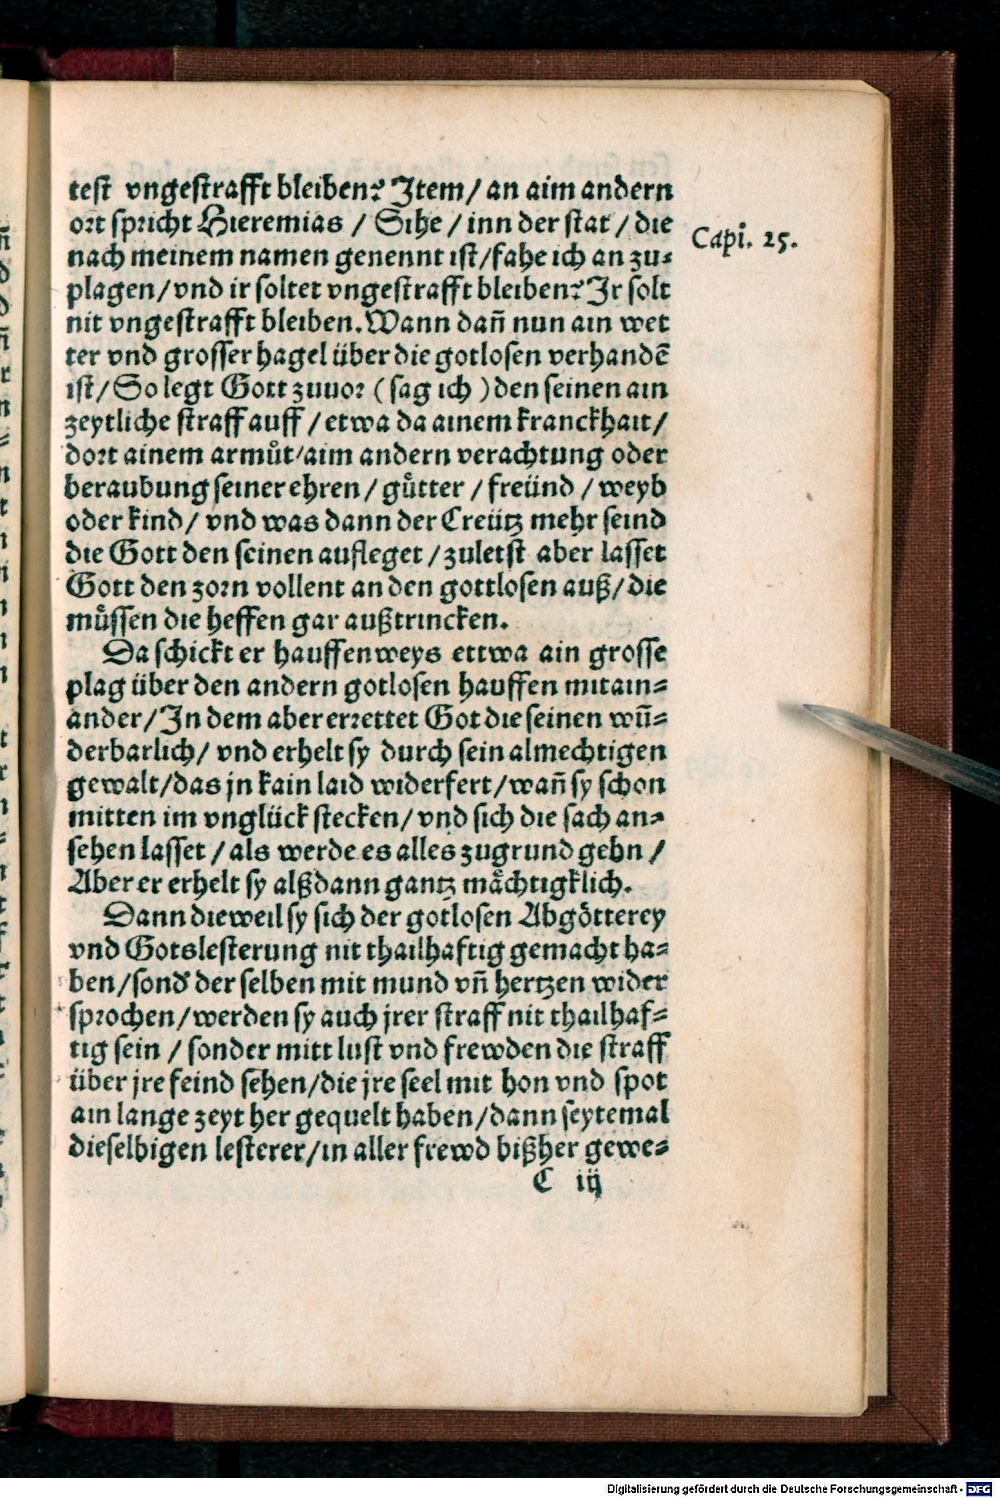 test vngestrafft bleiben? Item / an aim andern
ort spricht Hieremias / Sihe / inn der stat / die
Capi. 25.
nach meinem namen genennt ist / fahe ich an zu=
plagen / vnd ir soltet vngestrafft bleiben? Ir solt
nit vngestrafft bleiben. Wann dañ nun ain wet
ter vnd grosser hagel über die gotlosen verhandē
ist / So legt Gott zuuor ( sag ich ) den seinen ain
zeytliche straff auff / etwa da ainem kranckhait /
dort ainem armůt / aim andern verachtung oder
beraubung seiner ehren / gůtter / freünd / weyb
oder kind / vnd was dann der Creütz mehr seind
die Gott den seinen aufleget / zuletst aber lasset
Gott den zorn vollent an den gottlosen auß / die
müssen die heffen gar außtrincken.
Da schickt er hauffenweys ettwa ain grosse
plag über den andern gotlosen hauffen mitain=
ander / In dem aber errettet Got die seinen wũ=
derbarlich / vnd erhelt sy durch sein almechtigen
gewalt / das jn kain laid widerfert / wañ sy schon
mitten im vnglück stecken / vnd sich die sach an=
sehen lasset / als werde es alles zugrund gehn /
Aber er erhelt sy alßdann gantz mächtigklich.
Dann dieweil sy sich der gotlosen Abgötterey
vnd Gotslesterung nit thailhaftig gemacht ha=
ben / sond' der selben mit mund vñ hertzen wider
sprochen / werden sy auch jrer straff nit thailhaf=
tig sein / sonder mitt lust vnd frewden die straff
über jre feind sehen / die jre seel mit hon vnd spot
ain lange zeyt her gequelt haben / dann seytemal
dieselbigen lesterer / in aller frewd bißher gewe=
C iij
Digitalisierung gefördert durch die Deutsche Forschungsgemeinschaft - DFG